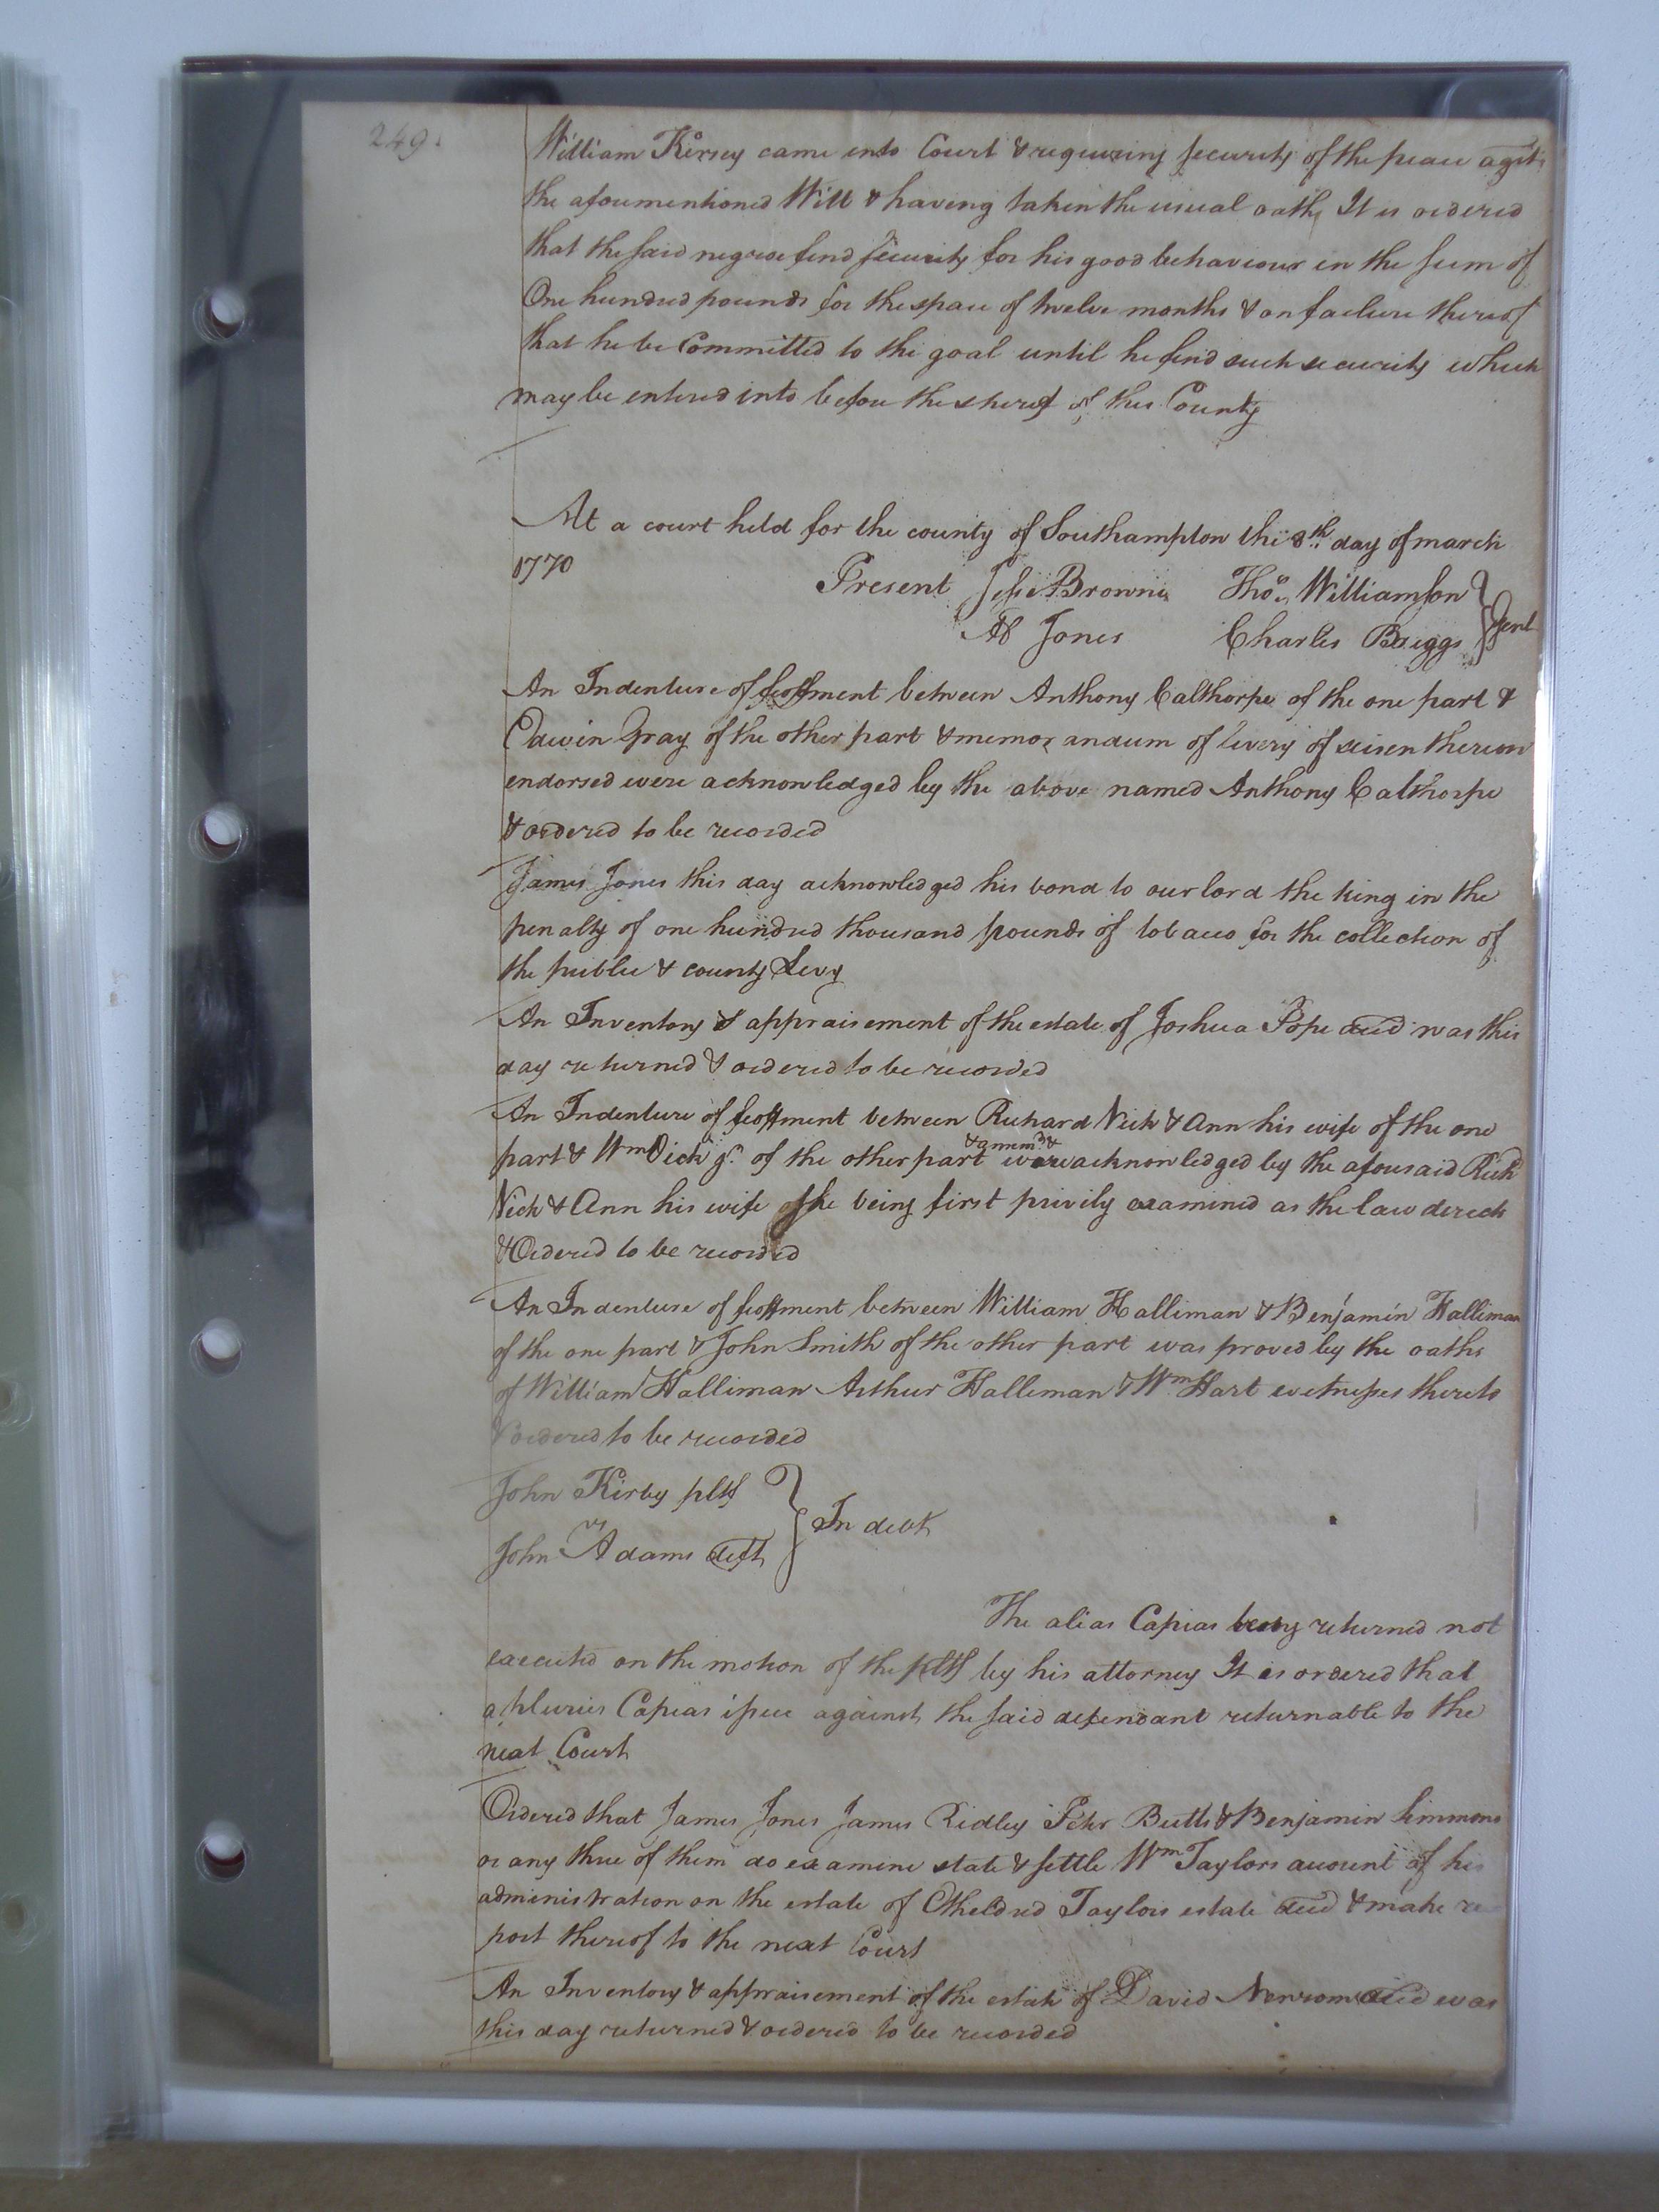 249.
William Kirsey came into Court & requiring security of the peace agst
the aforementioned Will & having taken the usual oath, It is ordered
that the said negroe find security for his good behaviour in the sum of
One hundred pounds for the space of twelve months & on failure thereof
that he be Committed to the goal until he find such security which
may be entered into before the sheref of this County
At a court held for the county of Southampton the 8th day of march
1770
Present Jesse Browne Thos. Williamson
Jones Charles Briggs } Gent
An Indenture of feoffment between Anthony Calthorpe of the one part &
Edwin Gray of the other part & memorandum of livery of seisen thereon
endorsed were acknowledged by the above named Anthony Calthorpe
& ordered to be recorded
James Jones this day acknowledged his bond to our lord the king in the
penalty of one hundred thousand pounds of tobacco for the collection of
the public & county Levy
An Inventory & appraisement of the estate of Joshua Pope decd was this
day returned & ordered to be recorded
An Indenture of feoffment between Richard Vick & Ann his wife of the one
&
part & Wm Vick jr. of the other part were acknowledged by the aforesaid Richd
Vick & Ann his wife she being first privily examined as the law directs
& Ordered to be recorded
An Indenture of feoffment between William Halliman & Benjamin Halliman
of the one part & John Smith of the other part was proved by the oaths
of William Halliman Arthur Halliman & Wm Hart witnesses thereto
& ordered to be recorded
John Kirby pltf
vs } In debt
John Adams deft
The alias Capias being returned not
executed on the motion of the pltf by his attorney It is ordered that
a pluries Capias issue against the said defendant returnable to the
next Court
Ordered that James Jones James Ridley Peter Butts & Benjamin Simmons
or any three of them do examine state & settle Wm Taylors account of his
administration on the estate of Etheldred Taylors estate decd & make re
port thereof to the next Court
An Inventory & appraisement of the estate of David Newsom decd was
this day returned & ordered to be recorded